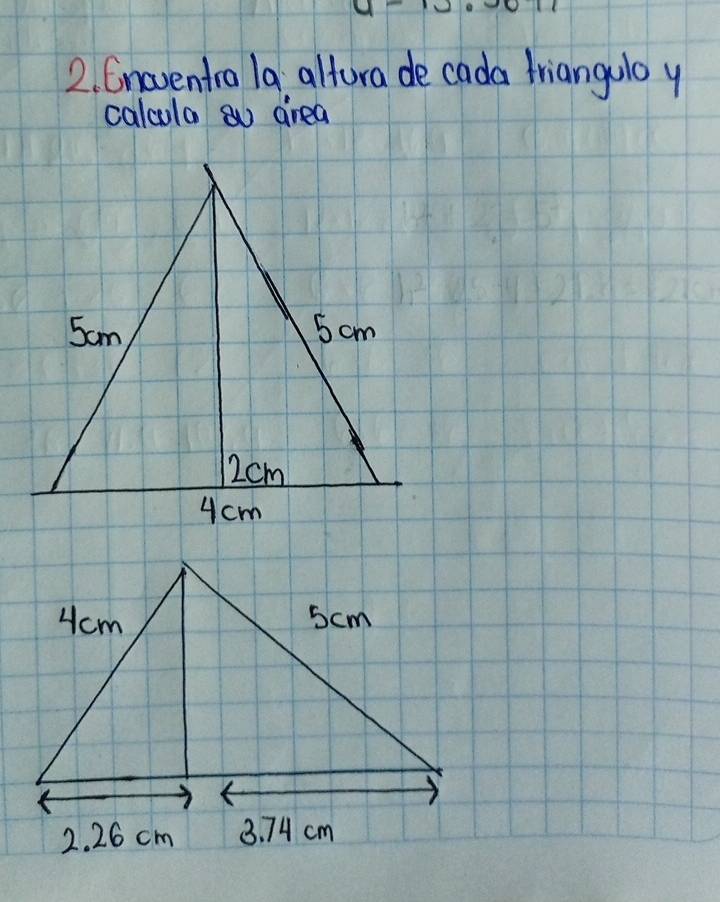 2. Encuentra la altura de cada triangulo y
calcula su área
5cm
5cm
2cm
4cm
4cm
5cm
2.26 cm
3.74 cm